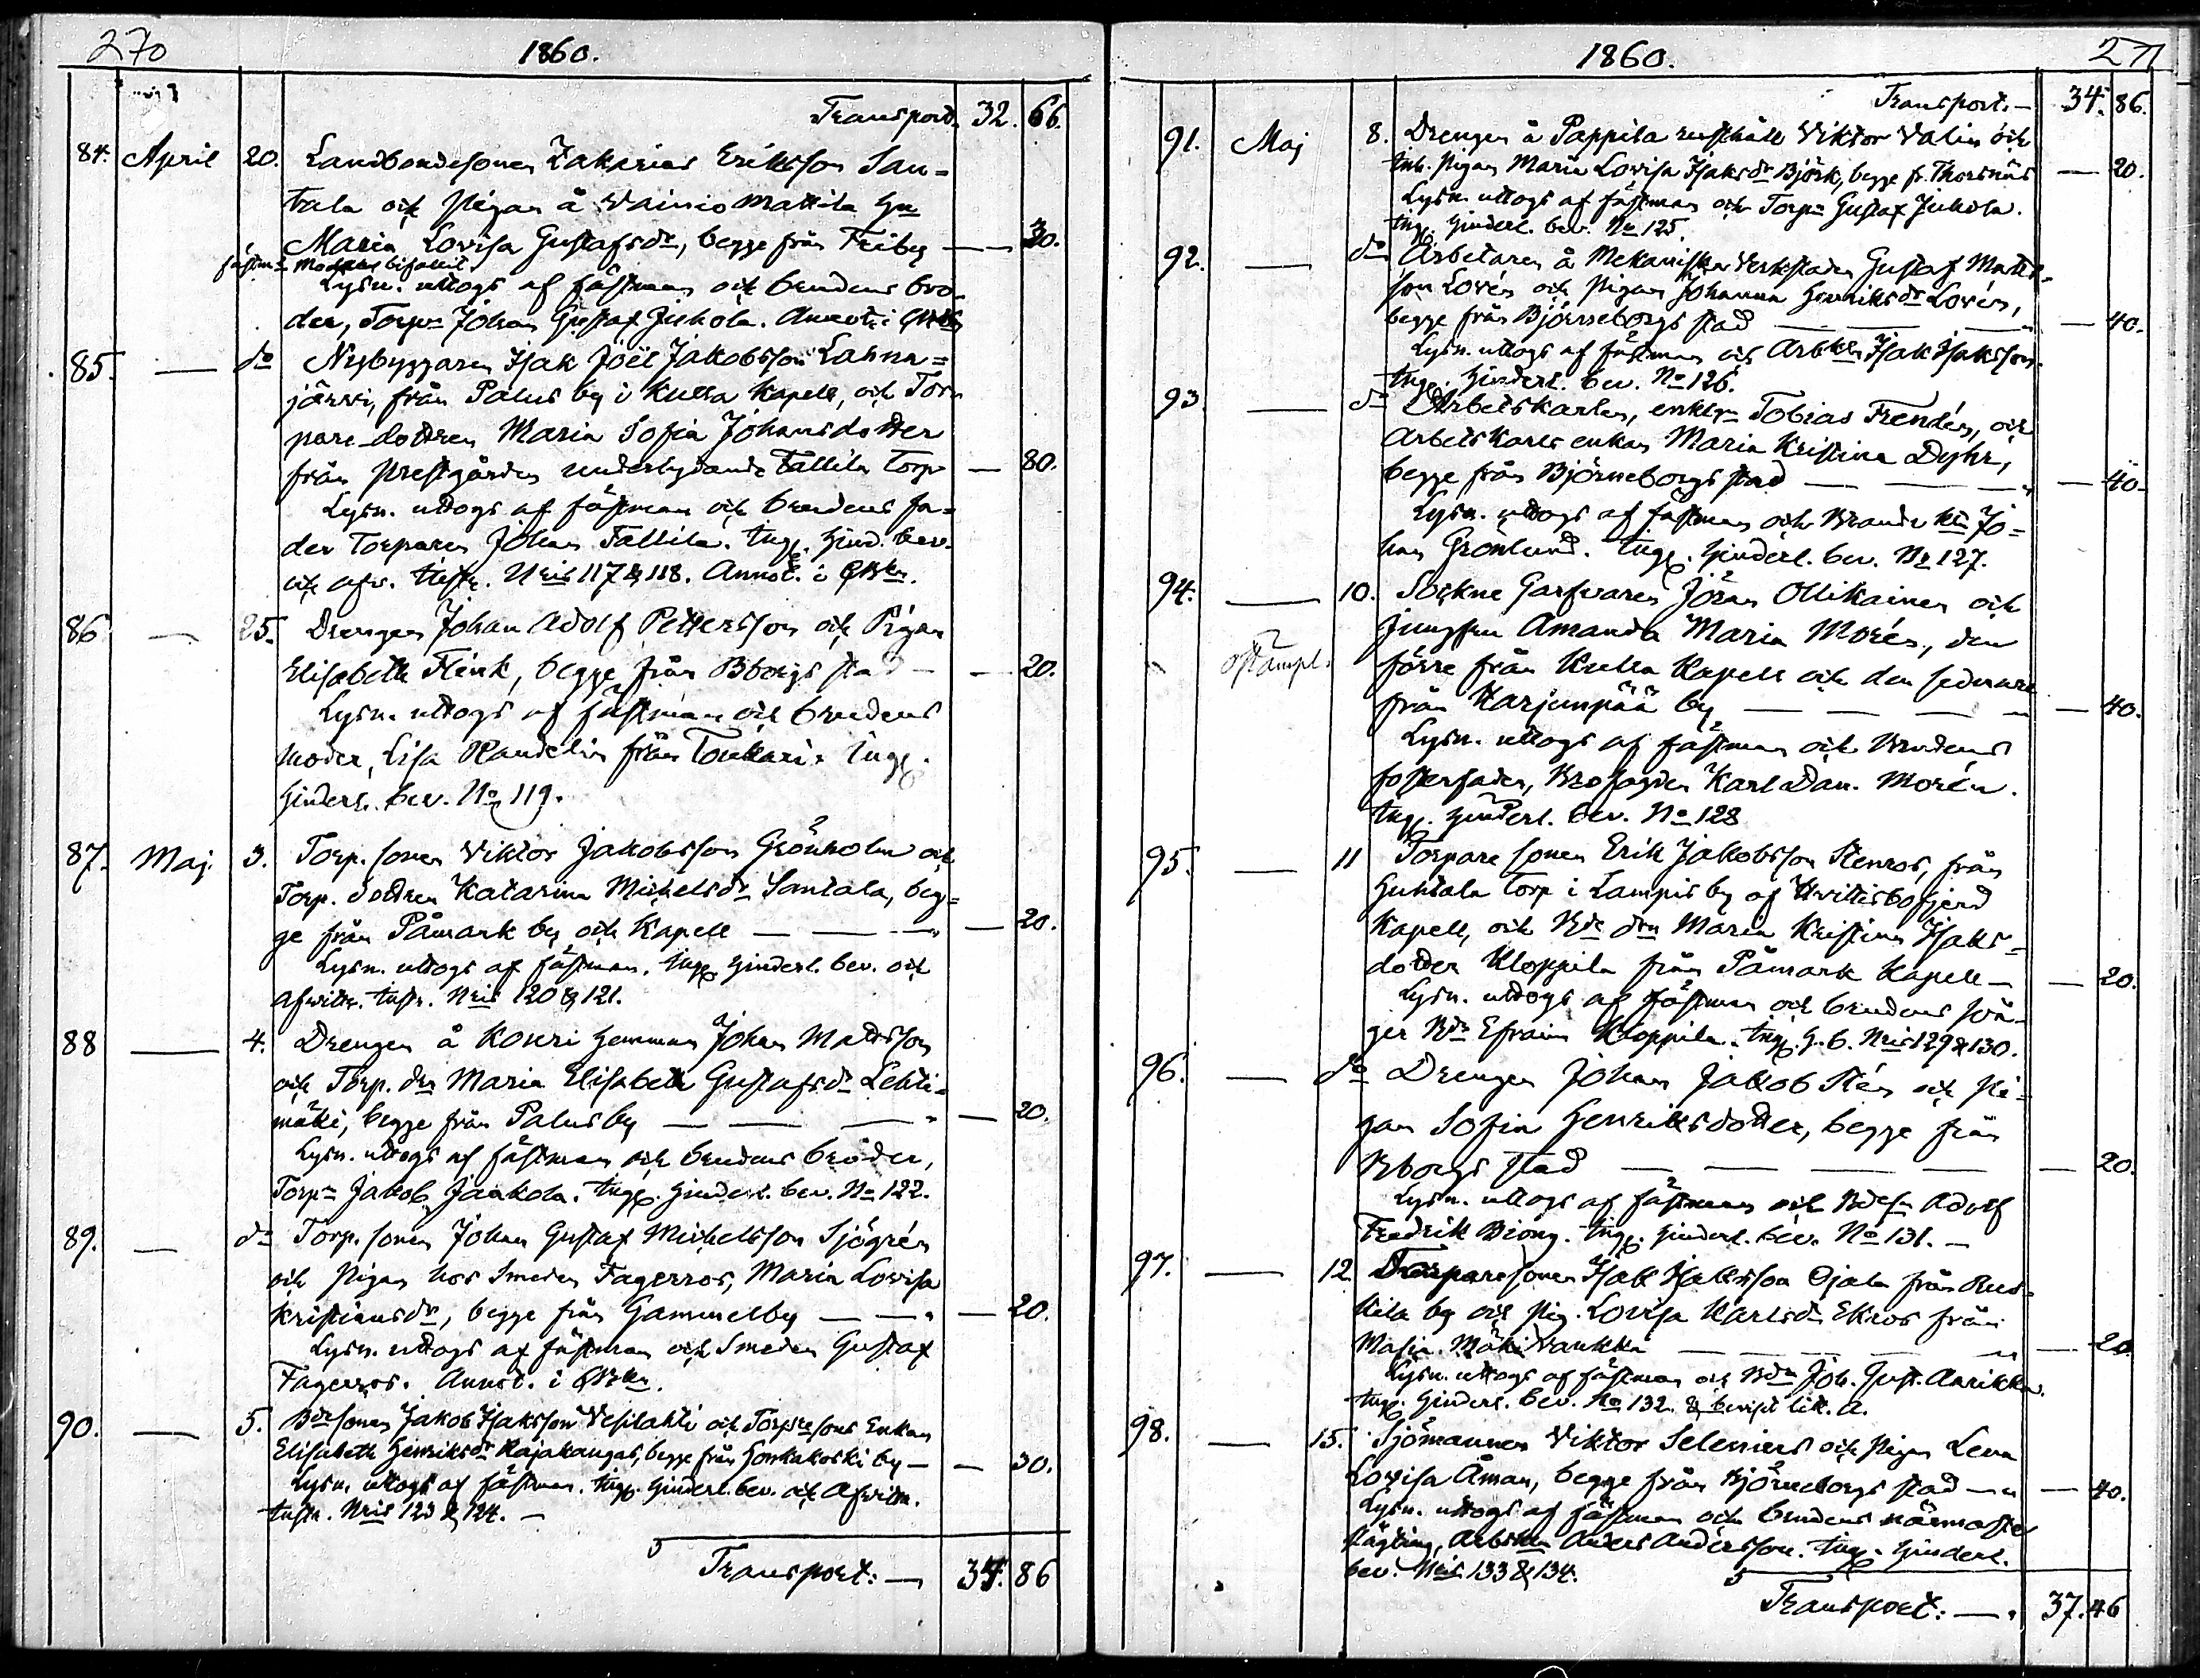 270 1860.
Transport. 32. 66.
84. April 20. Landbondesonen Zakarias Eriksson San=
tala och pigan å Wainio Mattila
Maria Lovisa Gustafsdr, begge från Friby — 30.
fästm: Moders bifallit.
Lysn. uttogs af fästman och brudens bro-
der, Torpn Johan Gustaf Jukola. Annot. i
85. — do Nybyggaren Isak Joël Jakobsson Lahna=
järwi, från Palus by i Kulla Kapell, och Tor-
pare-dottren Maria Sofia Johansdotter
från prestgården underlydande Tallila torp — 80.
Lysn. uttogs af fästman och brudens fa-
der Torparen Johan Tallila. Ingg. Hind. bev.
och afw. Nris 117 & 118. Annot. i
86 — 25. Drengen Johan Adolf Pettersson och Pigan
Elisabeth Flink, begge från Bborgs stad — 20.
Lysn. uttogs af fästman och brudens
moder, Lisa Randelin från Toukari. Ingg.
Hinderl. bev. No 119.
87. Maj. 3. Torp. sonen Viktor Jakobsson Grönholm och
Torp. dottren Katarina Michelsdr Santala, beg=
ge från Påmark by och Kapell — — — 20.
Lysn. uttogs af fästman. Ingg. Hinderl. bev. och
Afwittr. Nris 120 & 121.
88 — 4. Drengen å Konri hemman Johan Mattsson
och Torp. drn Maria Elisabeth Gustafsdr Lehti=
mäki, begge från Palus by — — — 20.
Lysn. uttogs af fästman och brudens broder,
Torpn Jakob Jaakola. Ingg. Hinderl. bev. No 122.
89. — do Torp. sonen Johan Gustaf Michelsson Sjögrén
och pigan hos Smeden Fagerros, Maria Lovisa
Kristiansdr, begge från Gammelby — — — 20.
Lysn. uttogs af fästman och Smeden Gustaf
Fagerros. Annot. i
90. — 5. Bdesonen Jakob Isaksson Vesilahti och Torpresons Enkan
Elisabeth Henriksdr Kajakangas, begge från Honkakoski by — 30.
Lysn. uttogs af fästman. Ingg. Hinderl. bev. och Afwittr.
Nris 123 & 124. —
Transport: — 34. 86
1860. 271
Transport. — 34. 86.
91. Maj 8. Drengen å Pappila rusthåll Viktor Valin och
Inh. pigan Maria Lovisa Isaksdr Björk, begge fr. Thorsnäs — 20.
Lysn. uttogs af fästman och Torpn Gustaf Jukola.
Ingg. Hinderl. bev. No 125.
92. — do Arbetaren å Mekaniska Verkstaden Gustaf Matts-
son Lovén och pigan Johanna Henriksdr Lovén,
begge från Björneborgs stad — — — 40.
Lysn. uttogs af fästman och Arbkln Isak Isaksson.
Ingg. Hinderl. bev. No 126.
93. — do Arbetskarlen, enklgn Tobias Frendén, och
Arbetskarls enkan Maria Kristina Dyhr,
begge från Björneborgs stad — — — 40.
Lysn. uttogs af fästman och Jo=
han Grönlund. Ingg. Hinderl. bev. No 127.
94. — 10. Sockne Garfvaren Jöran Ollikainen och
ostämpl. Jungfrun Amanda Maria Morén, den
förre från Kulla Kapell och den sednare
från Harjunpää by — — — 40.
Lysn. uttogs af fästman och brudens
fosterfader, Brofogden Karl Dan. Morén.
Ingg. Hinderl. bev. No 128
95. — 11 Torpare sonen Erik Jakobsson Stenros, från
Huhtala torp i Lampis by af Hvittisbofjerd
Kapell, och Bde drn Maria Kristina Isaks-
dotter Kloppila från Påmark Kapell — — 20.
Lysn. uttogs af fästman och brudens swå-
ger Bdn Efraim Kloppila. Ingg. H. b. Nris 129 & 130.
96. — do Drengen Johan Jakob Stén och pi-
gan Sofia Henriksdotter, begge från
Bborgs stad — — — 20.
Lysn. uttogs af fästman och Bdesn Adolf
Fredrik Biong. Ingg. Hinderl. bev. No 131. —
97. — 12 Torparesonen Isak Isaksson Ojala från Rus-
kila by och pig. Lovisa Karlsdr Ekros från
Mäkivankka — — 20
Lysn. uttogs af fästman och Bdn Joh. Gust. Anrikka.
Ingg. Hinderl. bev. No 132. & bewiset litt. A.
98. — 15. Sjömannen Viktor Selenius och pigan Lena
Lovisa Åman, begge från Björneborgs stad — — 40.
Lysn. uttogs af fästman och brudens närmaste
slägting, Arbskn Anders Andersson. Ingg. Hinderl.
bev. Nris 133 & 134.
Transport: — 37. 46